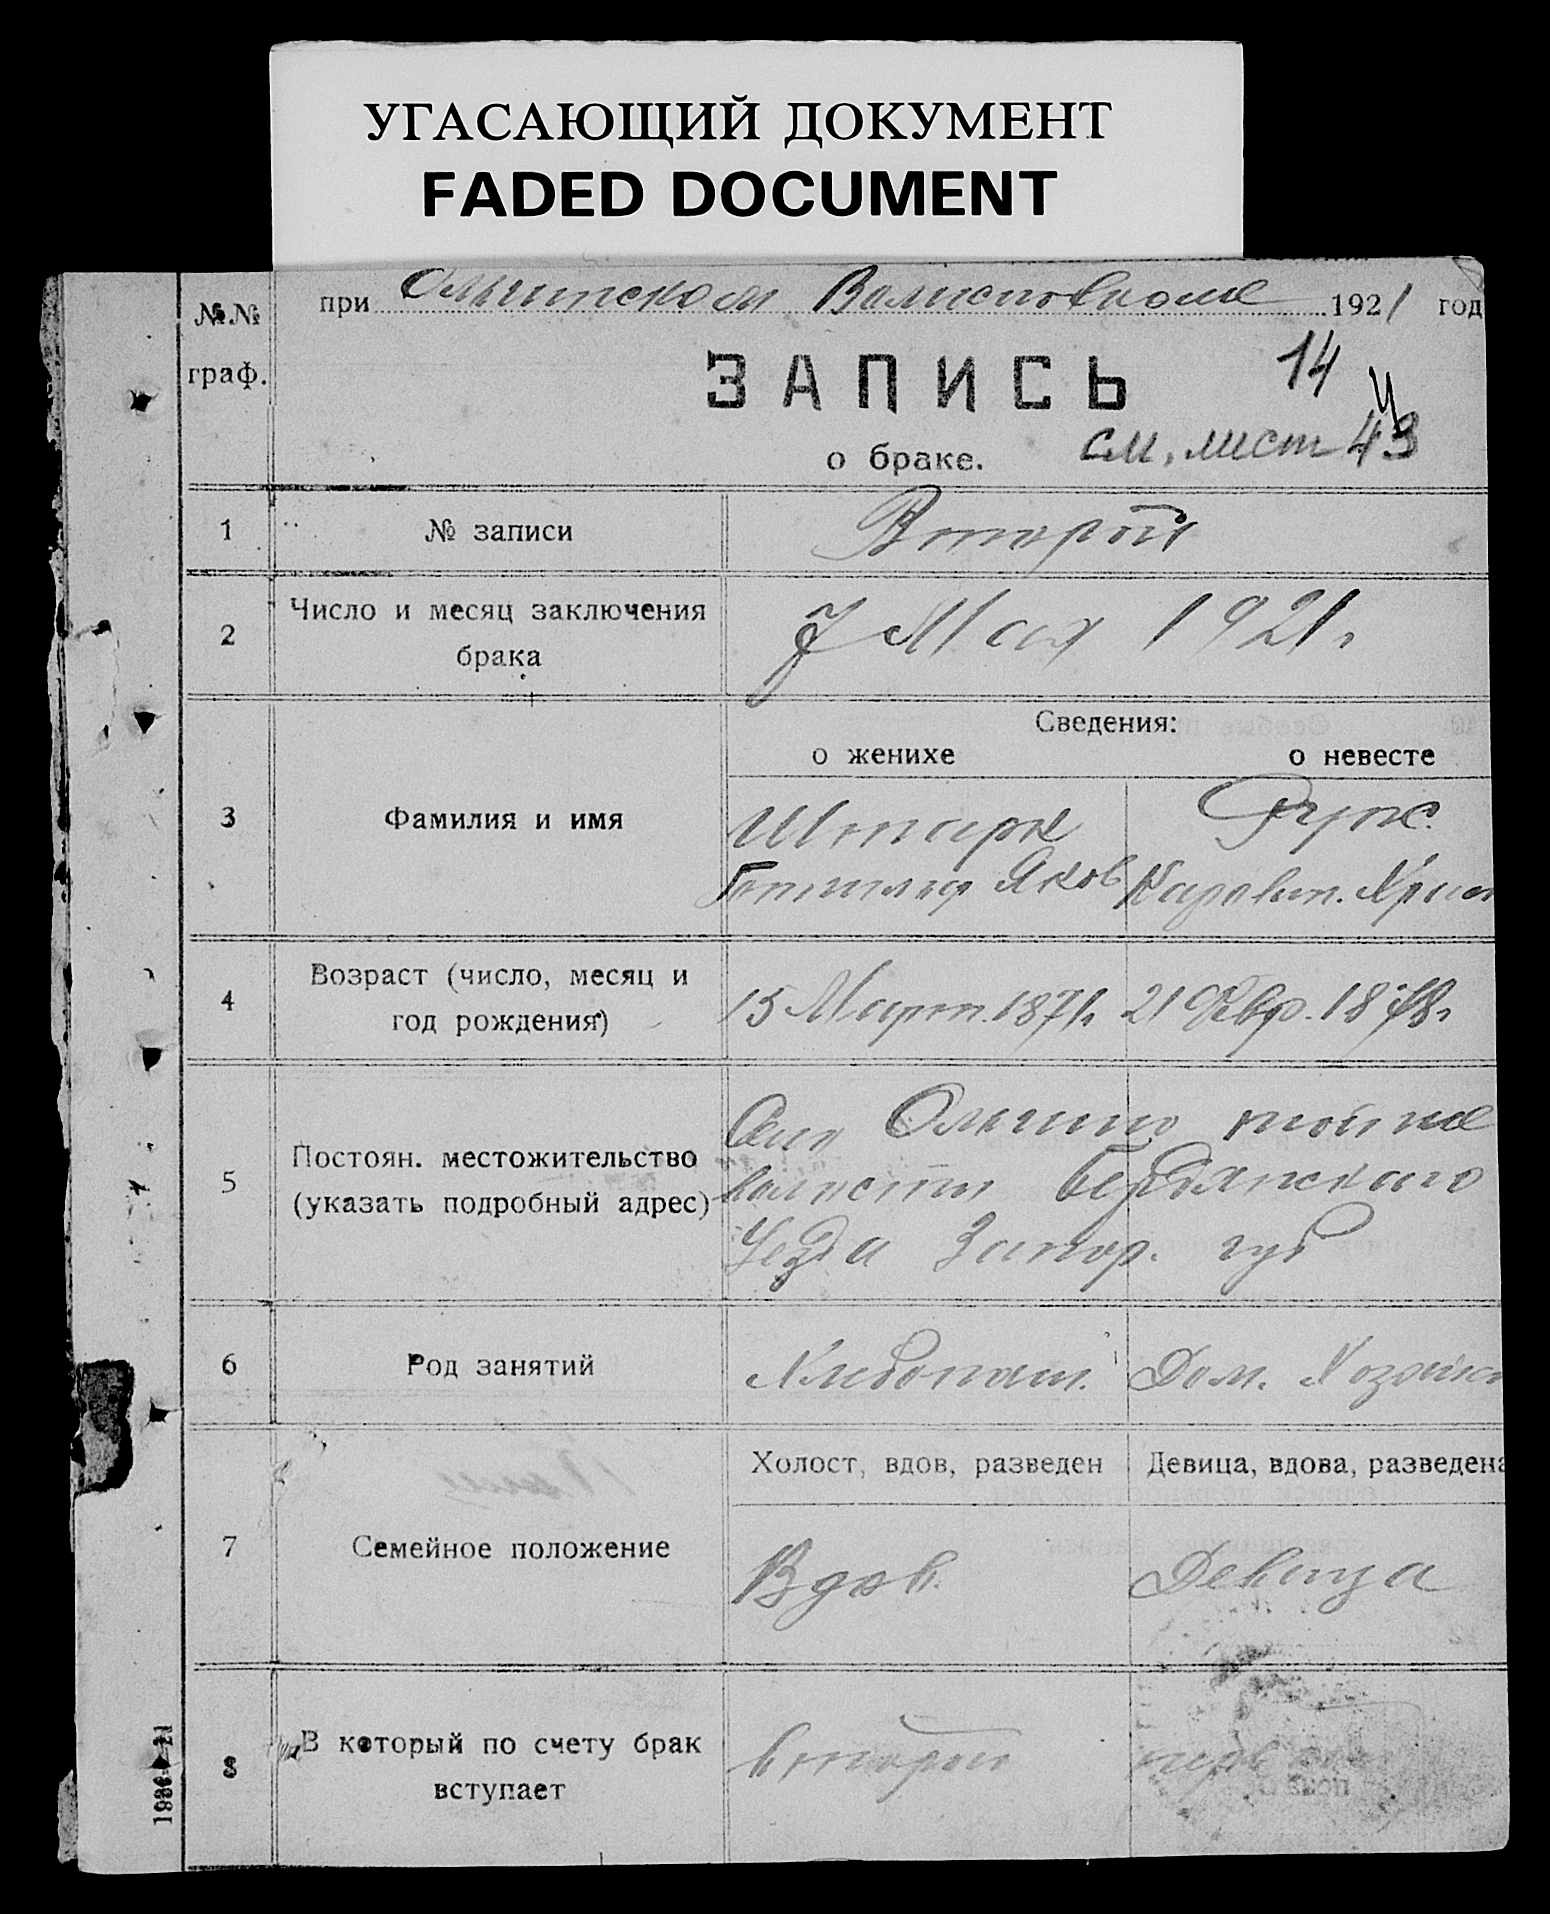 УГАСАЮЩИЙ ДОКУМЕНТ
FADED DOCUMENT
№№
граф.
при Ольгинском Волисполкоме 1921 год
ЗАПИСЬ
14
о браке.
см, лист 43
1
№ записи
Второй
2
Число и месяц заключения
брака
7 Мая 1921г
Сведения:
о женихе
о невесте
3
Фамилия и имя
Штарк
Фукс.
Готтлиб Яков
Христ
4
Возраст (число, месяц и
год рождения)
15 Март. 1871г
21 Февр. 1878г
5
Постоян. местожительство
(указать подробный адрес)
Село Ольгино той же
волости Бердянского
Уезда Запор. губ
6
Род занятий
Хлебопаш.
Дом. Хозяйка
7
Семейное положение
Холост, вдов, разведен
Девица, вдова, разведена
Вдов.
Девица
8
В который по счету брак
вступает
второй
1986—21